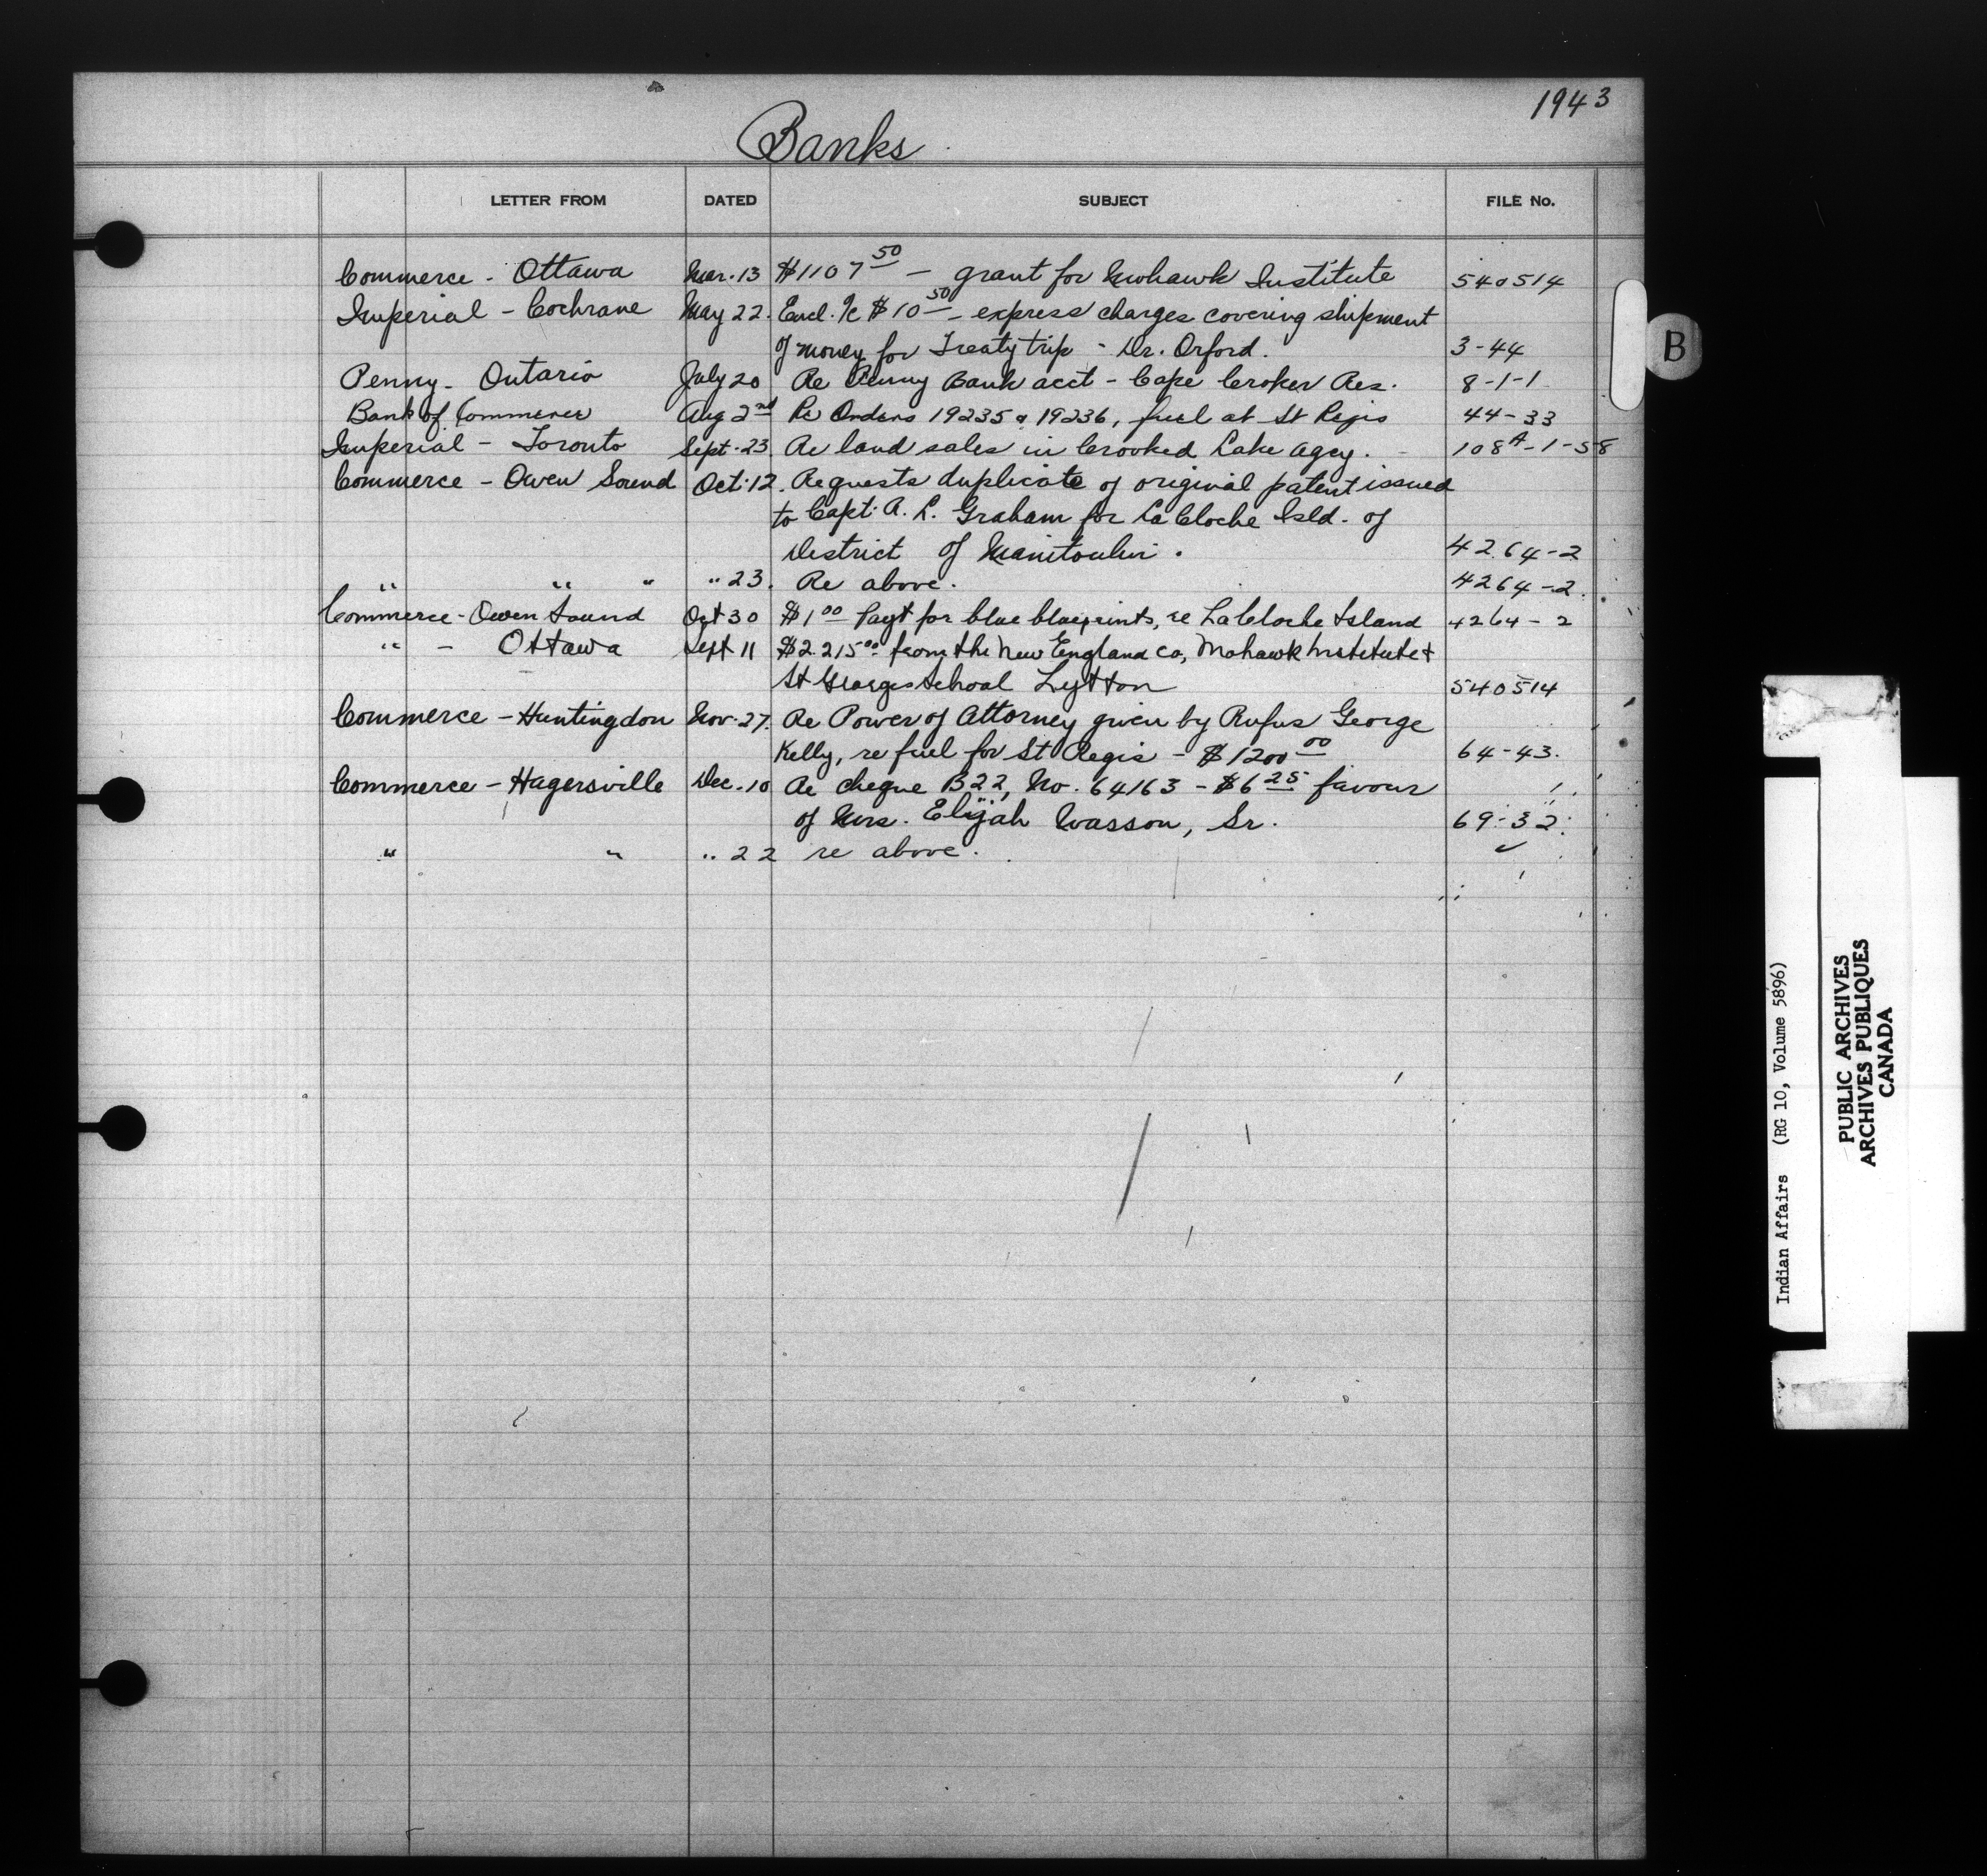 1943
Banks
LETTER FROM DATED SUBJECT FILE No.
Commerce - Ottawa Mar. 13 $1107 50 — grant for Mohawk Institute 540514
Imperial - Cochrane May 22. Encl. $10 50 - express charges covering shipment
of money for Treaty trip - Dr. Orford. 3-44
Penny - Ontario July 20 Re Penny Bank acct - Cape Croker Res. 8-1-1
Bank of Commerce Aug 2nd Re Orders 19235 & 19236, fuel at St Regis 44-33
Imperial - Toronto Sept. 23. Re land sales in Crooked Lake Agcy. 108A-1-58
Commerce - Owen Sound Oct. 12. Requests duplicate of original patent issued
to Capt. A. L. Graham for La Cloche Isld. of
District of Manitoulin. 4264-2
" " " " 23. Re above. 4264-2.
Commerce - Owen Sound Oct 30 $1 00 Payt for blue blueprints, re La Cloche Island 4264-2
" - Ottawa Sept 11 $2.215 00 from the New England Co, Mohawk Institute +
St Georges School Lytton 540514
Commerce - Huntingdon Nov. 27. Re Power of Attorney given by Rufus George
Kelly, re fuel for St Regis - $1200 00 64-43.
Commerce - Hagersville Dec. 10 Re cheque B22, No. 64163 - $6 25 favour
of Mrs. Elijah Wasson, Sr. 69-32.
" " " 22 re above. ✓
B
Indian Affairs (RG 10, Volume 5896)
PUBLIC ARCHIVES
ARCHIVES PUBLIQUES
CANADA